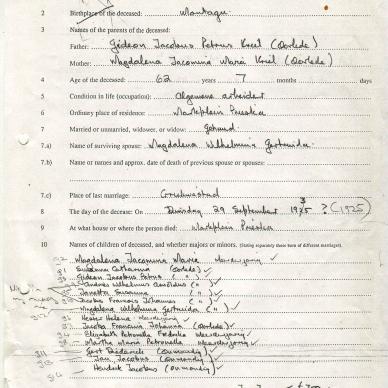 2 Birthplace of the deceased: Montagu
3 Names of the parents of the deceased:
Father: Gideon Jacobus Petrus Kriel (Oorlede)
Mother: Magdalena Jacomina Maria Kriel (Oorlede)
4 Age of the deceased: 62 years 7 months days
5 Condition in life (occupation): Algemene arbeider
6 Ordinary place of residence: Marktplein Prieska
7 Married or unmarried, widower, or widow: Getroud
7.a) Name of surviving spouse: Magdalena Wilhelmina Gertruida
7.b) Name or names and approx. date of death of previous spouse or spouses:
7.c) Place of last marriage:
8 The day of the deceased: On Dinsdag 29 September 1935 ? (1925)
3
9 At what house or where the person died: Marktplein Prieska
10 Names of children of deceased, and whether majors or minors. (Stating separately those born of different marriages).
Magdalena Jacomina Maria Meerderjarig
Susanna Catharina (Oorlede)
Gideon Jacobus Petrus (")
Andries Wilhelmus (")
Susanna (")
Jacobus Francois Johannes (")
Magdalena Wilhelmina Gertruida (")
Hester Helena Meerderjarig
Jacoba Francina Johanna (Oorlede)
Elizabeth Petronella Fredrika Meerderjarig
Martha Maria Petronella Meerderjarig
Gert Diederick (Onmondig)
Jan Jacobus (Onmondig)
Hendrik Jacobus (Onmondig)